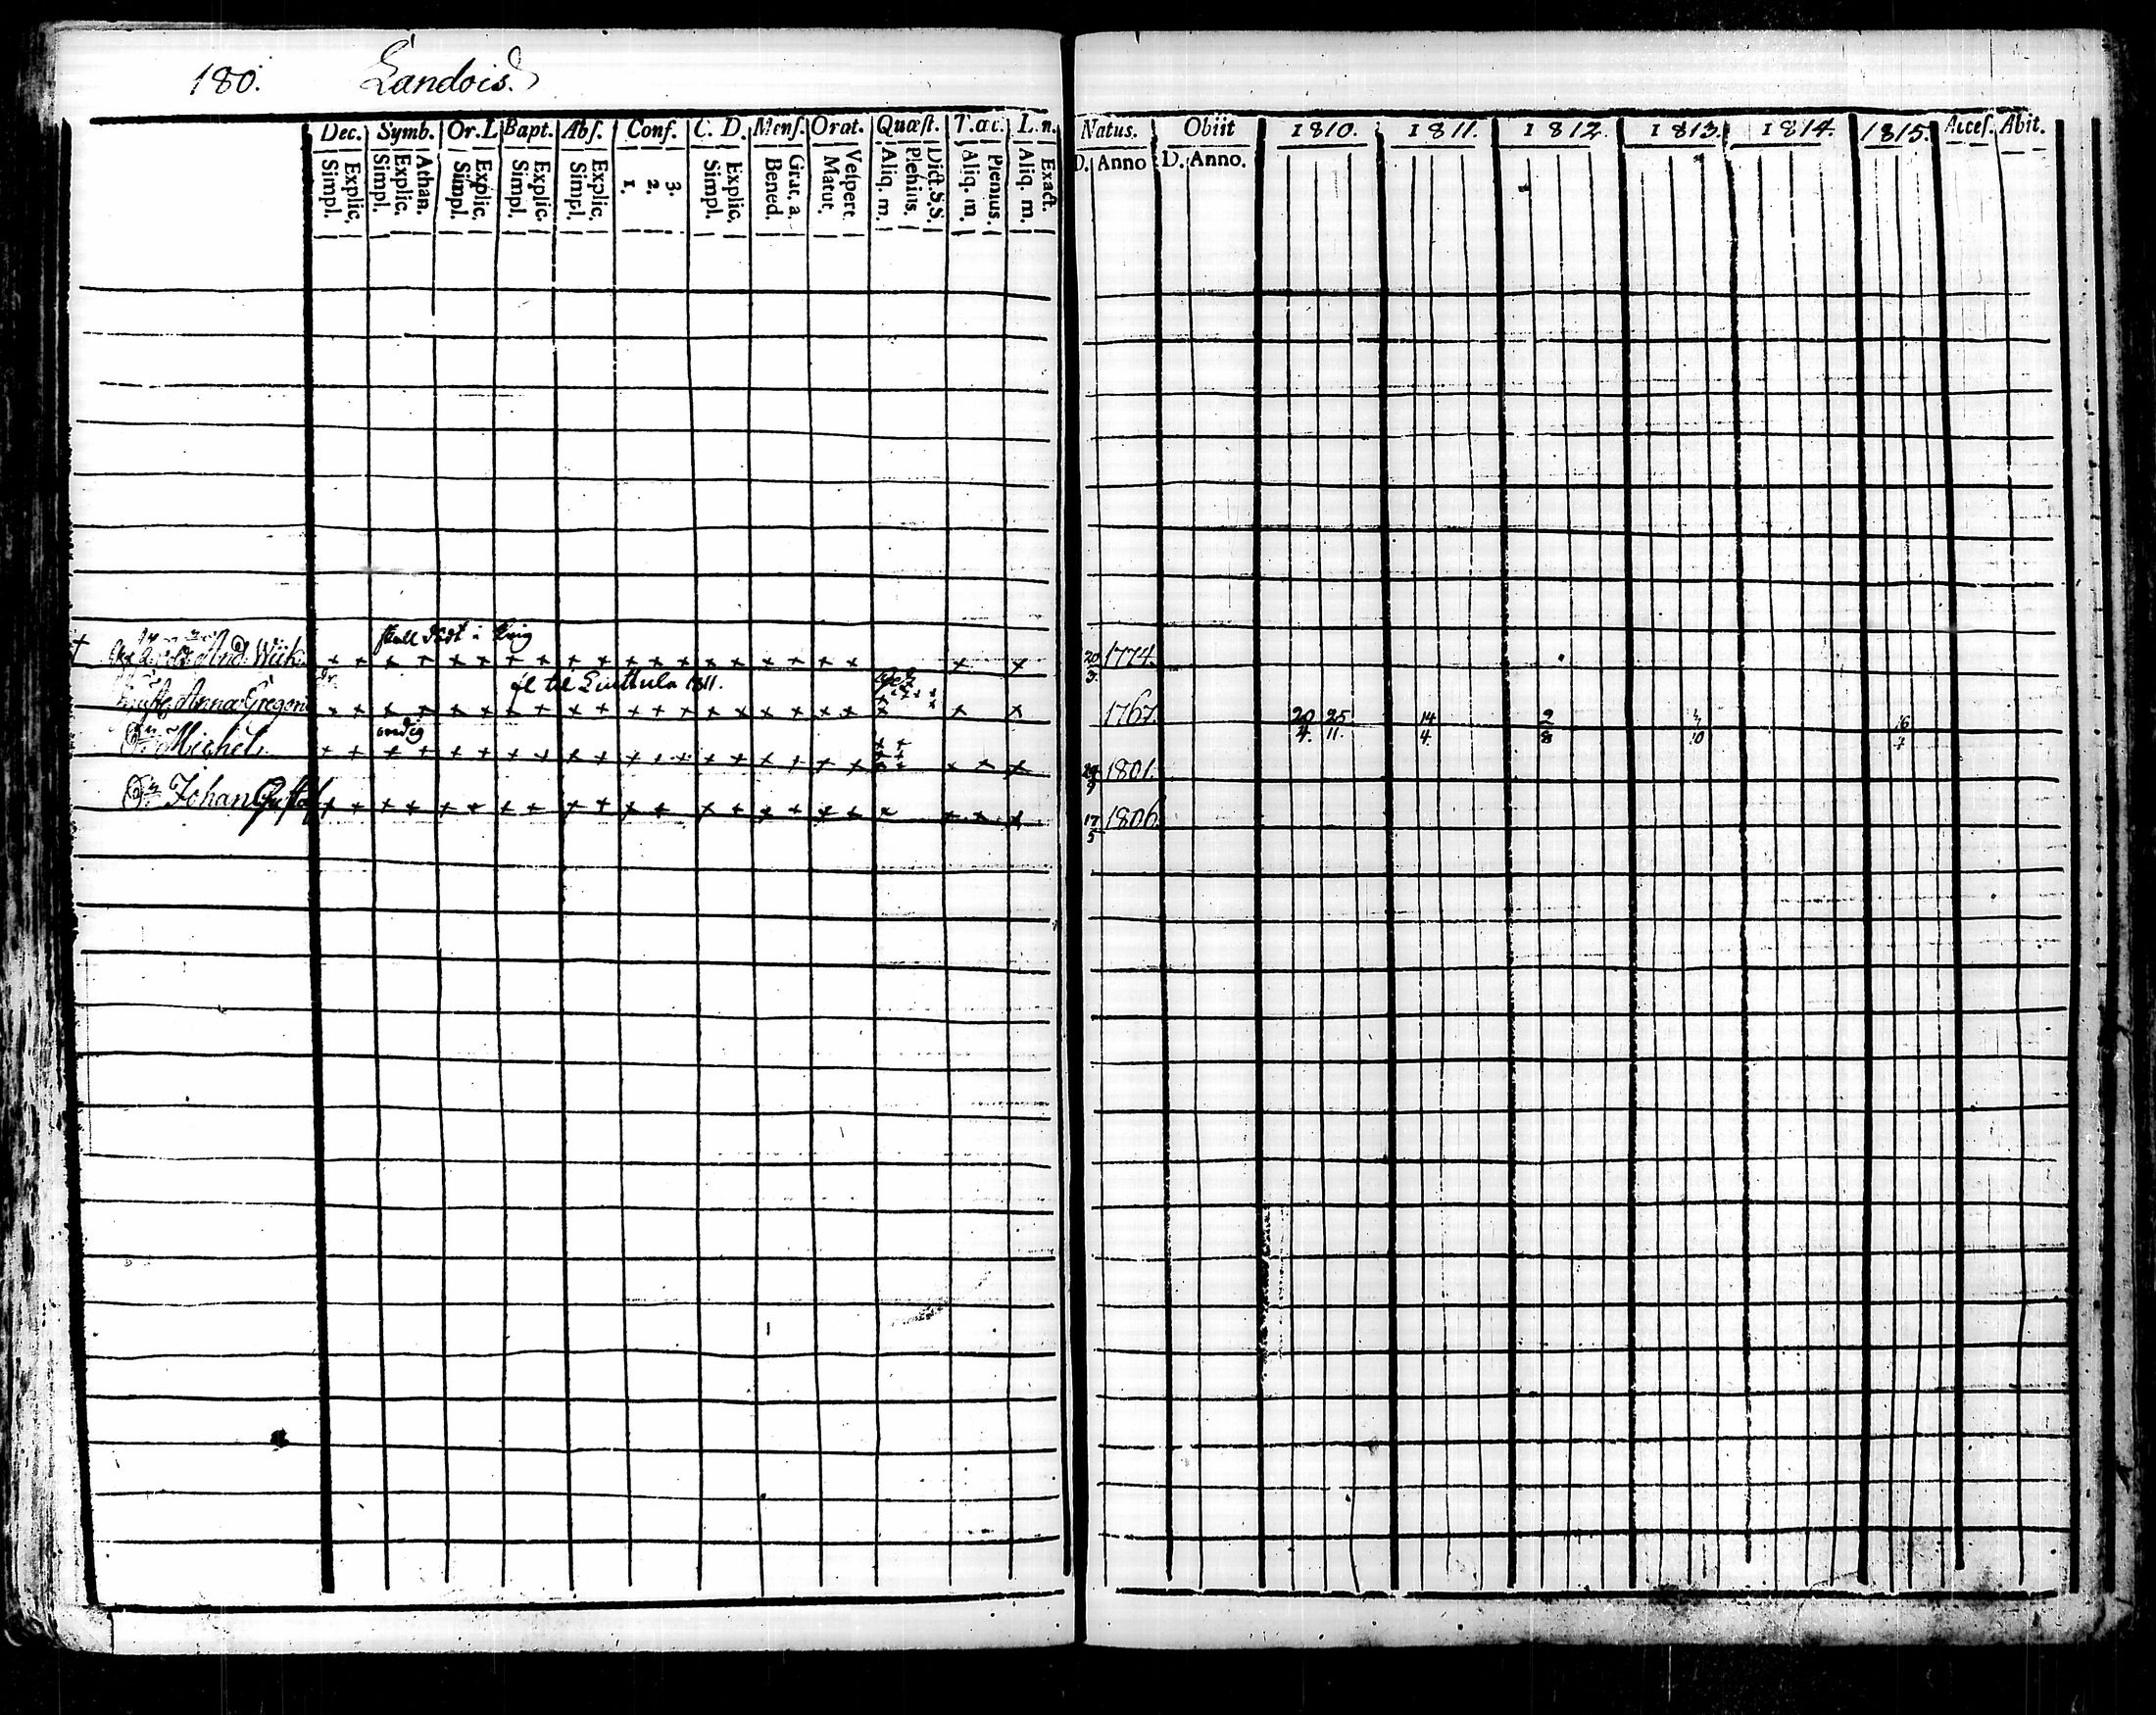 180. Landois.
Dec. Symb. Or. L. Bapt. Abs. Conf. C. D. Mens. Orat. Quæst. T. œc. L. n.
Simpl. Explic. Simpl. Explic. Athan. Simpl. Explic. Simpl. Explic. Simpl. Explic. 1. 2. 3. Simpl. Explic. Bened. Grat. a. Matut. Vespert. Aliq. m. Plenius. Dict. S.S. Aliq. m. Plenius. Aliq. m. Exact.
Natus. Obiit 1810. 1811. 1812. 1813. 1814. 1815. Acces. Abit.
D. Anno D. Anno.
skall dödt i krig
And. Wiik + + + + + + + + + + + + + + + + + + + + + 20/3 1774.
fl til Liuttula 1811.
Anna Gregori + + + + + + + + + + + + + + + + + + + + + + 1767 20/4. 25/11. 14/4. 2/8 6/7
Michel. + + + + + + + + + + + + + + + + + + + + + + + 1801.
Johan Gustaf + + + + + + + + + + + + + + + + + + + + + + 17/5 1806.